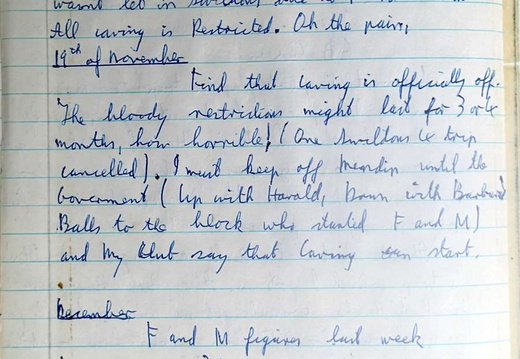 wasnt let in Swildons
All caving is Restricted. Oh the pain,
19th of November
Find that caving is officially off.
The bloody restrictions might last for 3 or 4
months, how horrible! (One Swildons 4 trip
cancelled). I must keep off Mendip until the
Goverment (Up with Harold, Down with Barbara
Balls to the block who started F and M)
and my Club say that Caving can start.
December
F and M figures last week